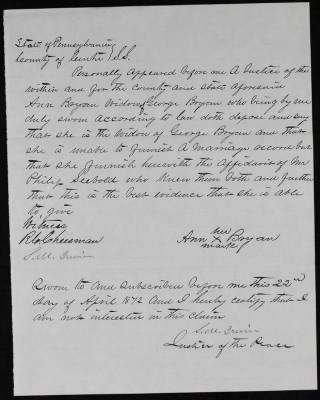 State of Pennsylvania
County of Centre } S.S.
Personally Appeared before me A Justice of the
within and for the county and state aforesaid
Ann Boyan Widow of George Boyan who being by me
duly sworn according to law doth depose and say
that she is the Widow of George Boyan and that
she is unable to furnish A Marriage record but
that she furnish herewith the Affidavit of Mr
Philip Seebold who knew them both and further
that this is the best evidence that she is able
to give
Witness
R. G. Cheesman
S. M. Irwin
Ann her X mark Boyan
Sworn to and Subscribed before me this 22nd
day of April 1872 And I hereby certify that I
am not interested in this claim
S. M. Irwin
Justice of the Peace